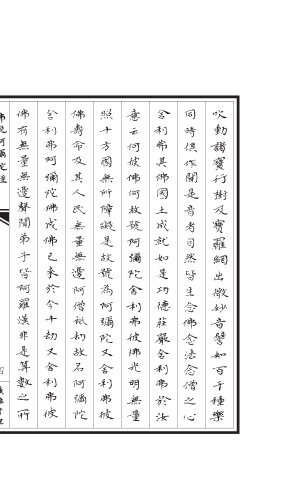 吹動諸寶行樹及寶羅網出微妙音譬如百千種樂
同時俱作聞是音者自然皆生念佛念法念僧之心
舍利弗其佛國土成就如是功德莊嚴舍利弗於汝
意云何彼佛何故號阿彌陀舍利弗彼佛光明無量
照十方國無所障礙是故號為阿彌陀又舍利弗彼
佛壽命及其人民無量無邊阿僧祇劫故名阿彌陀
舍利弗阿彌陀佛成佛已來於今十劫又舍利弗彼
佛有無量無邊聲聞弟子皆阿羅漢非是算數之所
佛說阿彌陀經